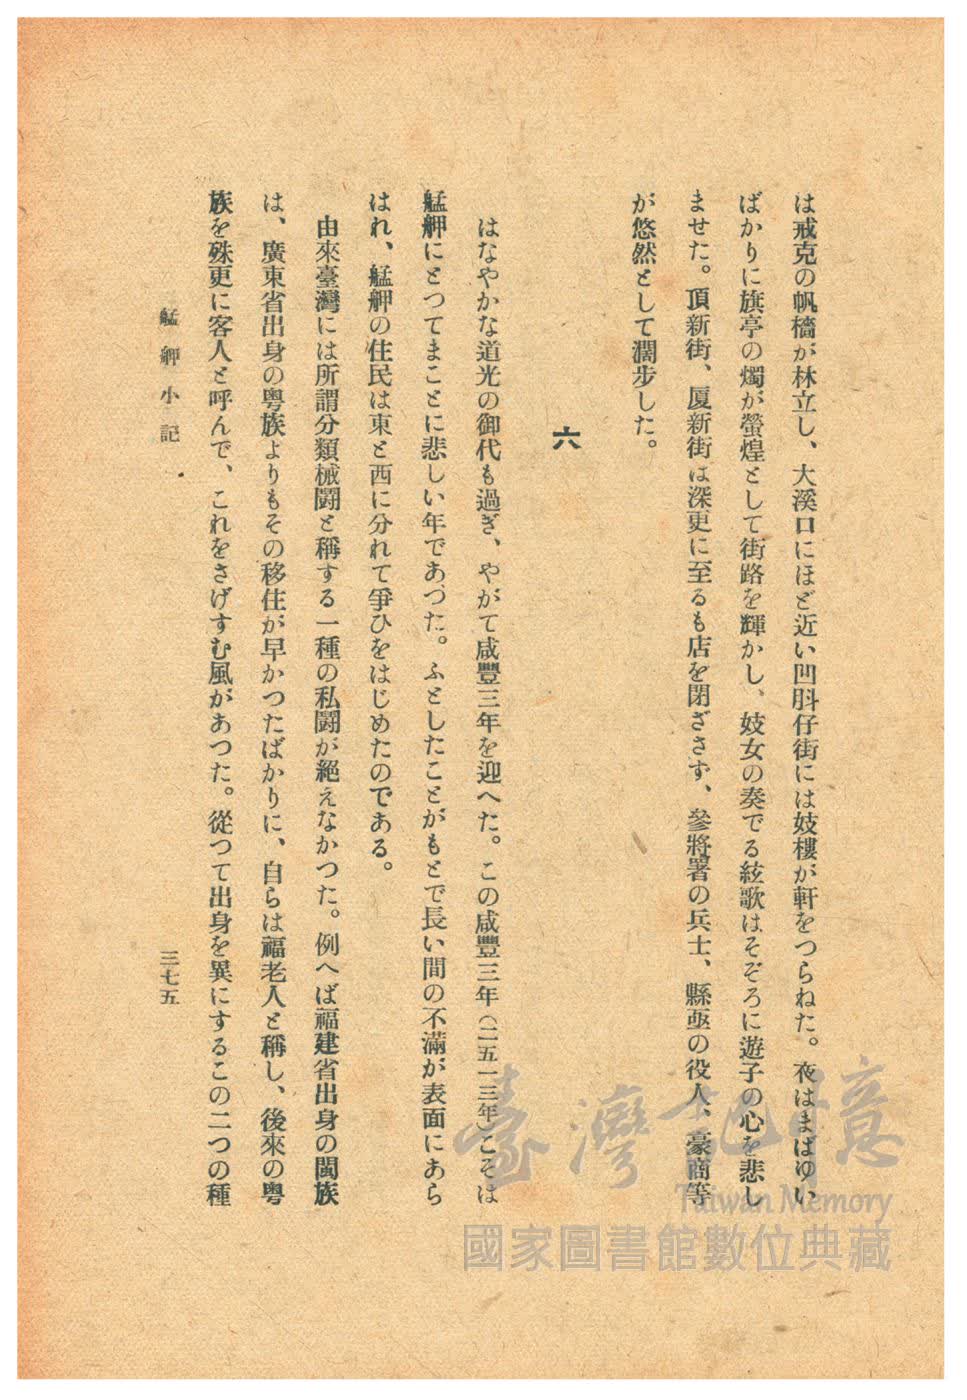 は戒克の帆檣が林立し、大溪口にほど近い凹斗仔街には妓樓が軒をつらねた。夜はまばゆい
ばかりに旗亭の燭が螢煌として街路を輝かし、妓女の奏でる絃歌はそぞろに遊子の心を悲し
ませた。頂新街、厦新街は深更に至るも店を閉ざさず、參將署の兵士、縣丞の役人、豪商等
が悠然として濶步した。
六
はなやかな道光の御代も過ぎ、やがて咸豐三年を迎へた。この咸豐三年（二五一三年）こそは
艋舺にとつてまことに悲しい年であつた。ふとしたことがもとで長い間の不滿が表面にあら
はれ、艋舺の住民は東と西に分れて爭ひをはじめたのである。
由來臺灣には所謂分類械鬪と稱する一種の私鬪が絕えなかつた。例へば福建省出身の閩族
は、廣東省出身の粤族よりもその移住が早かつたばかりに、自らは福老人と稱し、後來の粤
族を殊更に客人と呼んで、これをさげすむ風があつた。從つて出身を異にするこの二つの種
艋舺小記
三七五
臺灣記憶
Taiwan Memory
國家圖書館數位典藏